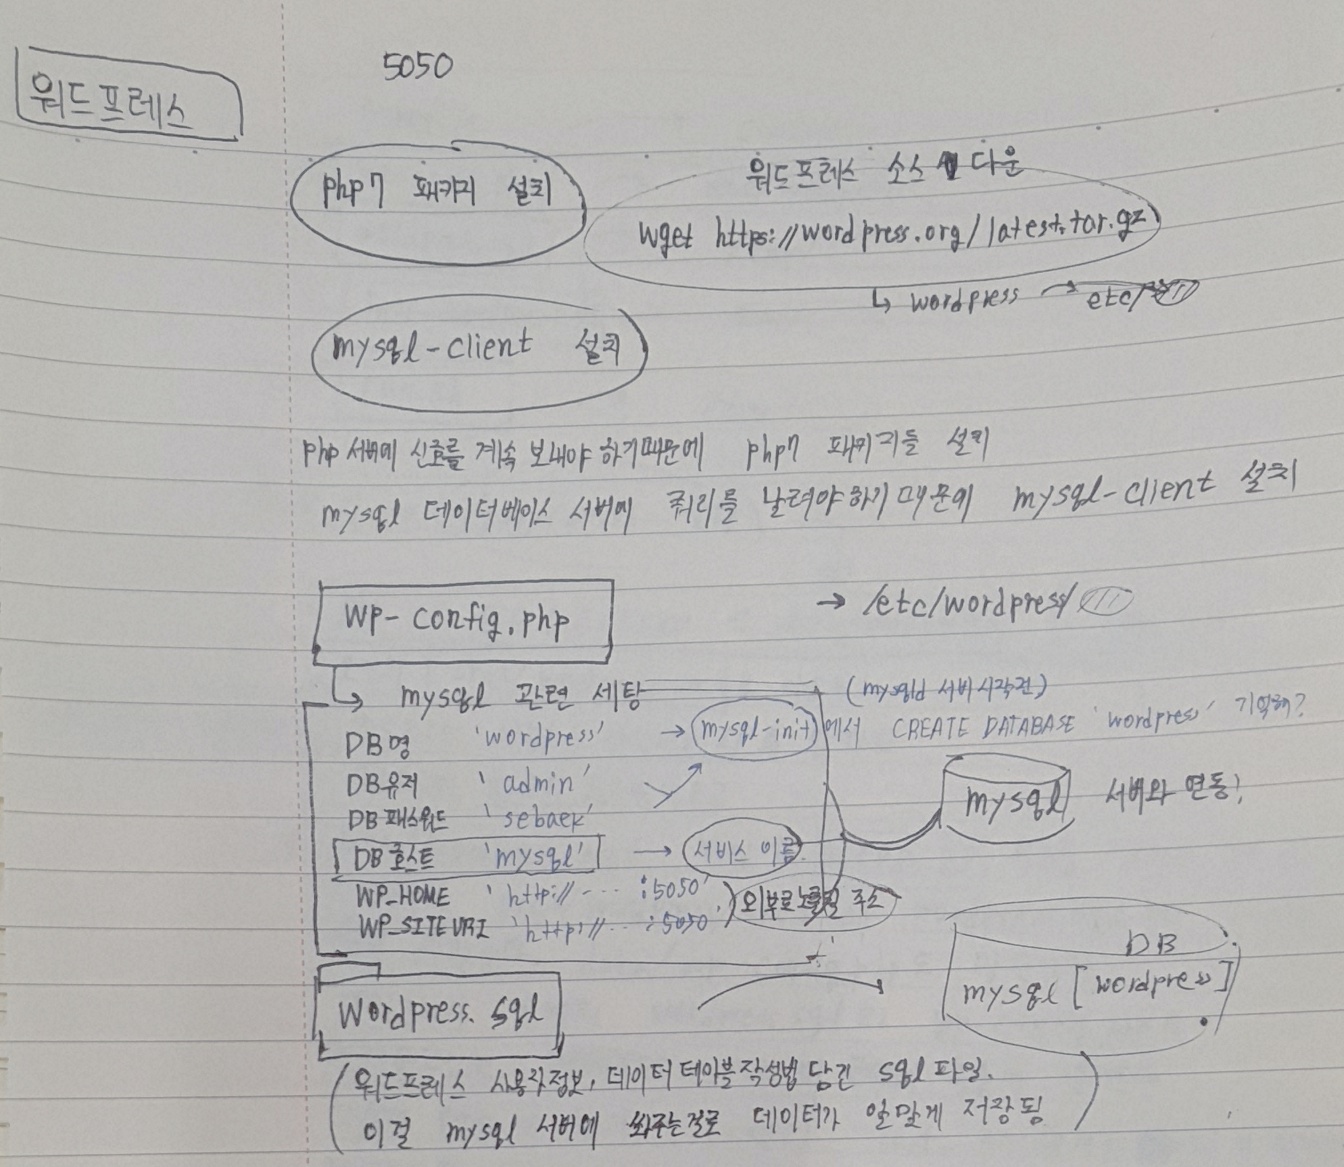 5050
워드프레스
php7 패키지 설치
워드프레스 소스 다운
wget https://wordpress.org/latest.tar.gz
↳ wordpress → etc/
mysql-client 설치
php 서버에 신호를 계속 보내야 하기때문에 php7 패키지들 설치
mysql 데이터베이스 서버에 쿼리를 날려야하기 때문에 mysql-client 설치
WP-config.php → /etc/wordpress/
↳ mysql 관련 세팅
(mysqld 서버 시작전)
DB명 'wordpress' → mysql-init 에서 CREATE DATABASE 'wordpress' 기억해?
DB유저 'admin'
DB패스워드 'sebaek'
mysql 서버와 연동!
DB호스트 'mysql' → 서비스 이름.
WP_HOME 'http://--- :5050'
WP_SITEURI 'http://--- :5050 외부로 노출될 주소
DB
Wordpress.sql
mysql [wordpress]
(워드프레스 사용자정보, 데이터 테이블작성법 담긴 sql 파일.
이걸 mysql 서버에 쏴주는걸로 데이터가 알맞게 저장됨)